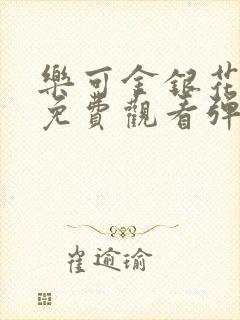 樂可金銀花
免費觀看彈
崔逾瑜